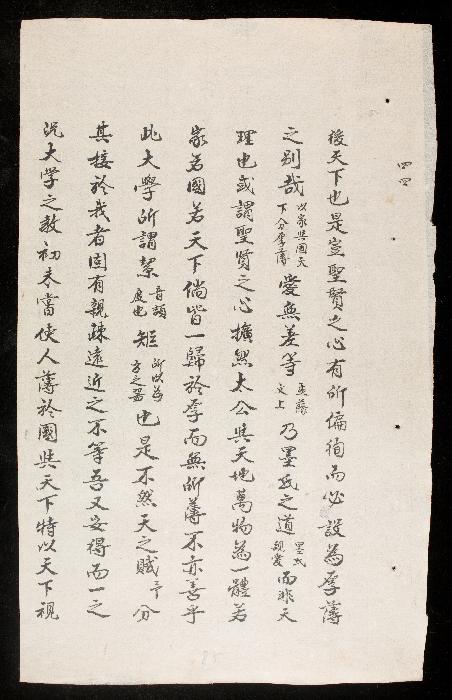 四四
後天下也是豈聖賢之心有所偏徇而必設為厚薄
之別哉以家與國天下分厚薄愛無差等孟滕文上乃墨氏之道墨氏親愛而非天
理也或謂聖賢之心擴然太公與天地萬物為一體若
家若國若天下倘皆一歸於厚而無所薄不亦善乎
此大學所謂絜音頡度也矩所以為方之器也是不然天之賦予分
其接於我者固有親疎遠近之不等吾又安得而一之
況大学之教初未嘗使人薄於國與天下特以天下視